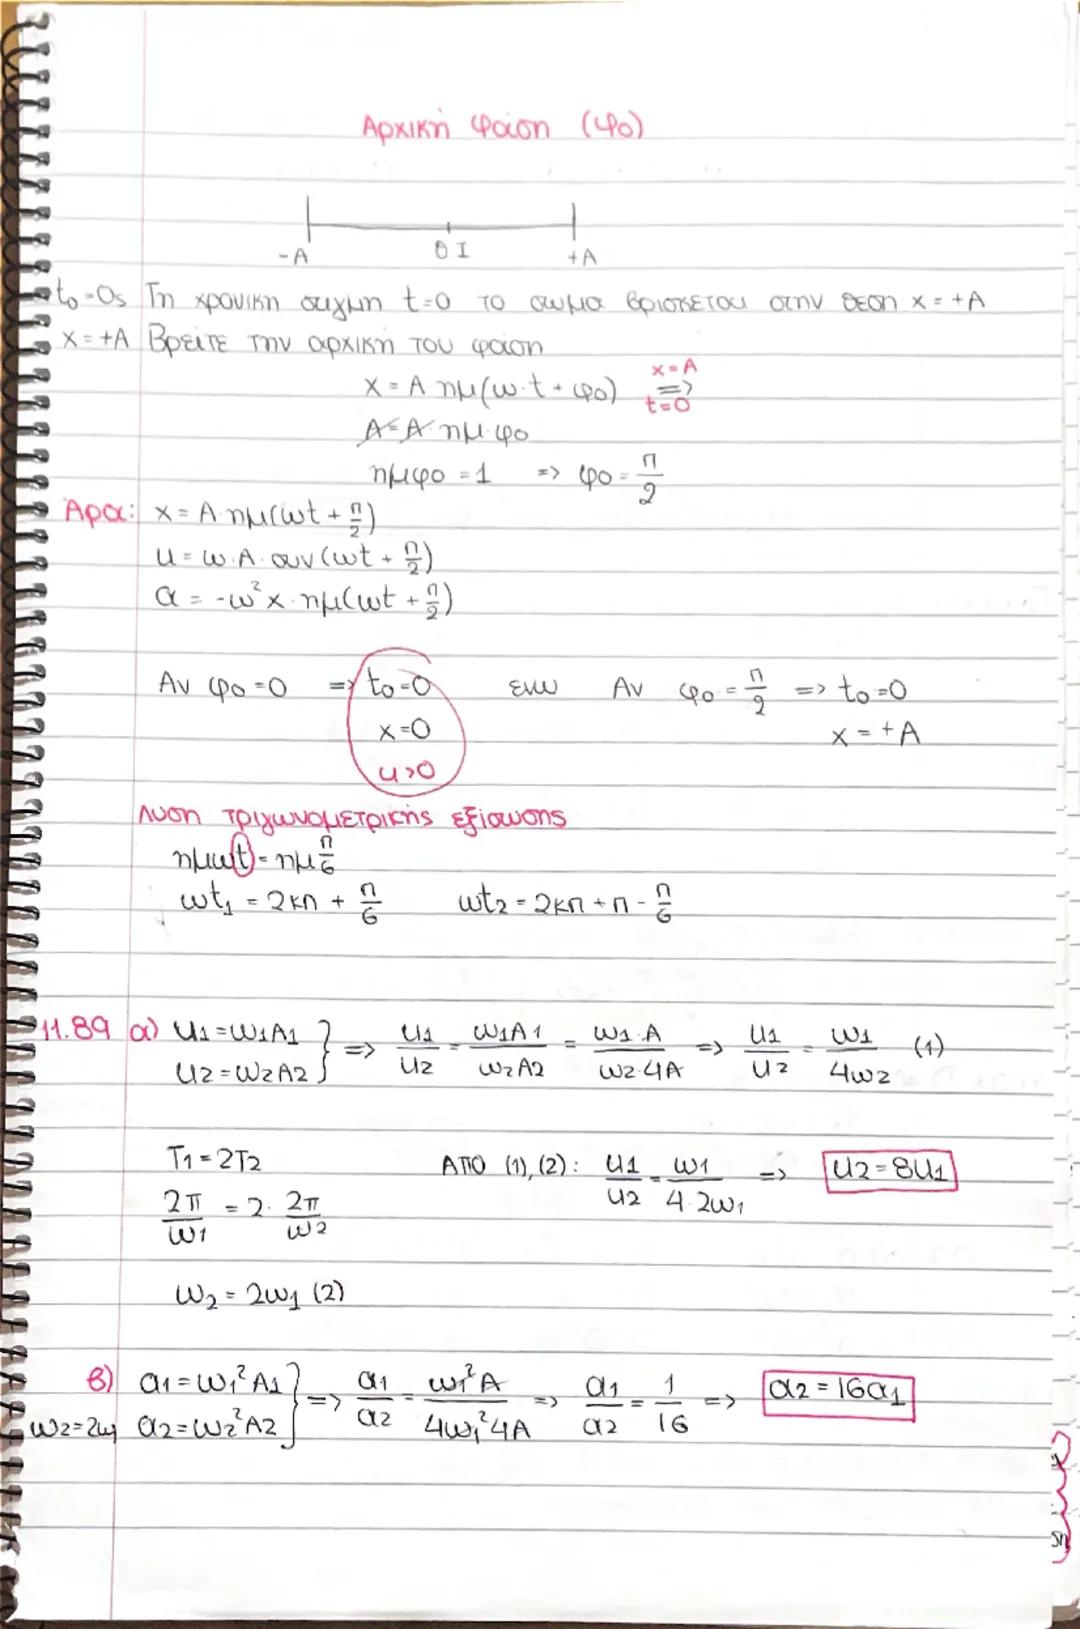 Αρχική φάση (φ0)
-A 0 I +A
t0=0s Τη χρονική στιγμή t=0 το σώμα βρίσκεται στην θέση x = +A
x = +A Βρείτε την αρχική του φάση
x = A ημ(ω·t + φ0) x=A => t=0
A=A ημ φ0
ημφ0 = 1 => φ0 = π/2
Άρα: x = A·ημ(ωt + π/2)
u = ω·A·συν(ωt + π/2)
α = -ω²x·ημ(ωt + π/2)
Αν φ0=0 => t0=0 ενώ Αν φ0 = π/2 => t0=0
x=0 x = +A
u>0
Λύση τριγωνομετρικής εξίσωσης
ημωt = ημ π/6
ωt1 = 2κπ + π/6 ωt2 = 2κπ + π - π/6
11.89 α) U1=ω1A1 } => U1/U2 = ω1A1/ω2A2 = ω1·A/ω2·4A => U1/U2 = ω1/4ω2 (1)
U2=ω2A2
T1=2T2 ΑΠΟ (1),(2): U1/U2 = ω1/4·2ω1 => U2=8U1
2π/ω1 = 2·2π/ω2
ω2 = 2ω1 (2)
β) α1=ω1²A1 } => α1/α2 = ω1²A/4ω1²4A => α1/α2 = 1/16 => α2=16α1
ω2=2ω1 α2=ω2²A2